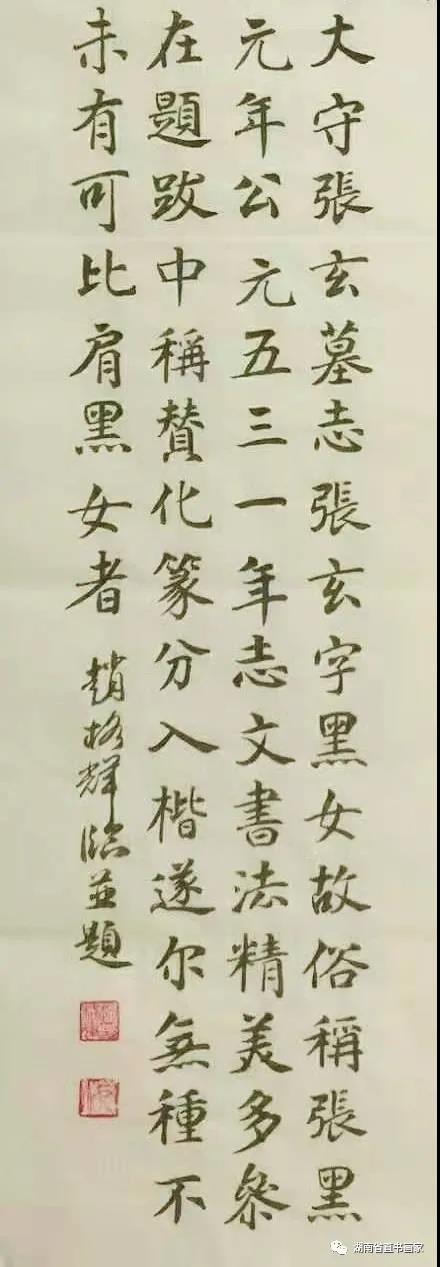 大守張玄墓志張玄字黑女故俗稱張黑
元年公元五三一年志文書法精美多参
在題跋中稱賛化篆分入楷遂尔無種不
未有可比肩黑女者
趙格輝臨並題
湖南省直书画家